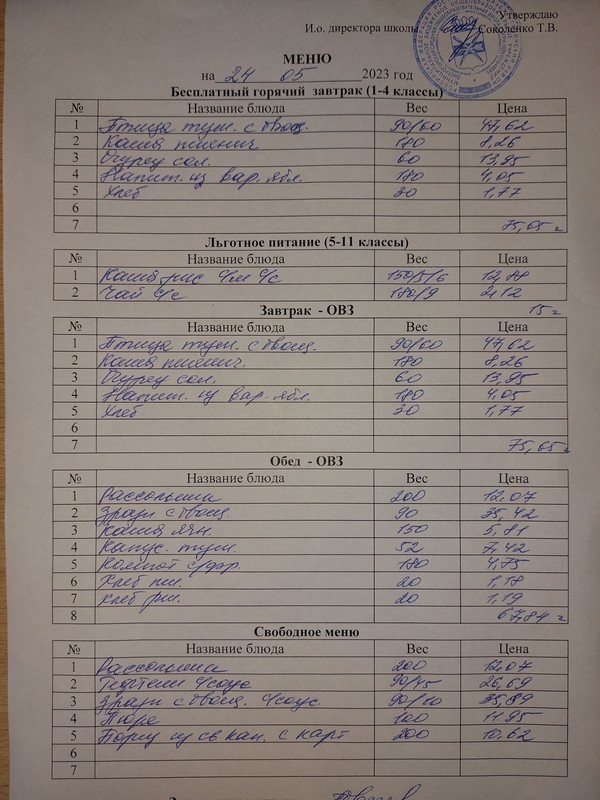 Утверждаю
И.о. директора школы Соколенко Т.В.
МЕНЮ
на 24 05 2023 год
Бесплатный горячий завтрак (1-4 классы)
№ Название блюда Вес Цена
1 Птица туш. с овощ. 90/60 47,62
2 Каша пшенич 180 8,26
3 Огурец сол. 60 13,95
4 Напит. из вар. ябл. 180 4,05
5 Хлеб 30 1,77
6
7 75,65 г
Льготное питание (5-11 классы)
№ Название блюда Вес Цена
1 Каша рис с/м с/с 150/5/6 12,88
2 Чай с/с 180/9 2,12
Завтрак - ОВЗ 15 г
№ Название блюда Вес Цена
1 Птица туш. с овощ. 90/60 47,62
2 Каша пшенич. 180 8,26
3 Огурец сол. 60 13,95
4 Напит. из вар. ябл. 180 4,05
5 Хлеб 30 1,77
6
7 75,65 г
Обед - ОВЗ
№ Название блюда Вес Цена
1 Рассольник 200 12,07
2 Зразы с овощ 90 35,42
3 Каша ячн. 150 5,81
4 Капус. туш. 52 7,42
5 Компот с/фр. 180 4,75
6 Хлеб пш. 20 1,18
7 Хлеб рж. 20 1,19
8 67,84 г
Свободное меню
№ Название блюда Вес Цена
1 Рассольник 200 12,07
2 Тефтели с/соус 90/45 26,69
3 Зразы с овощ. с/соус 90/10 35,89
4 Пюре 100 11,95
5 Борщ из св кап. с карт 200 10,62
6
7